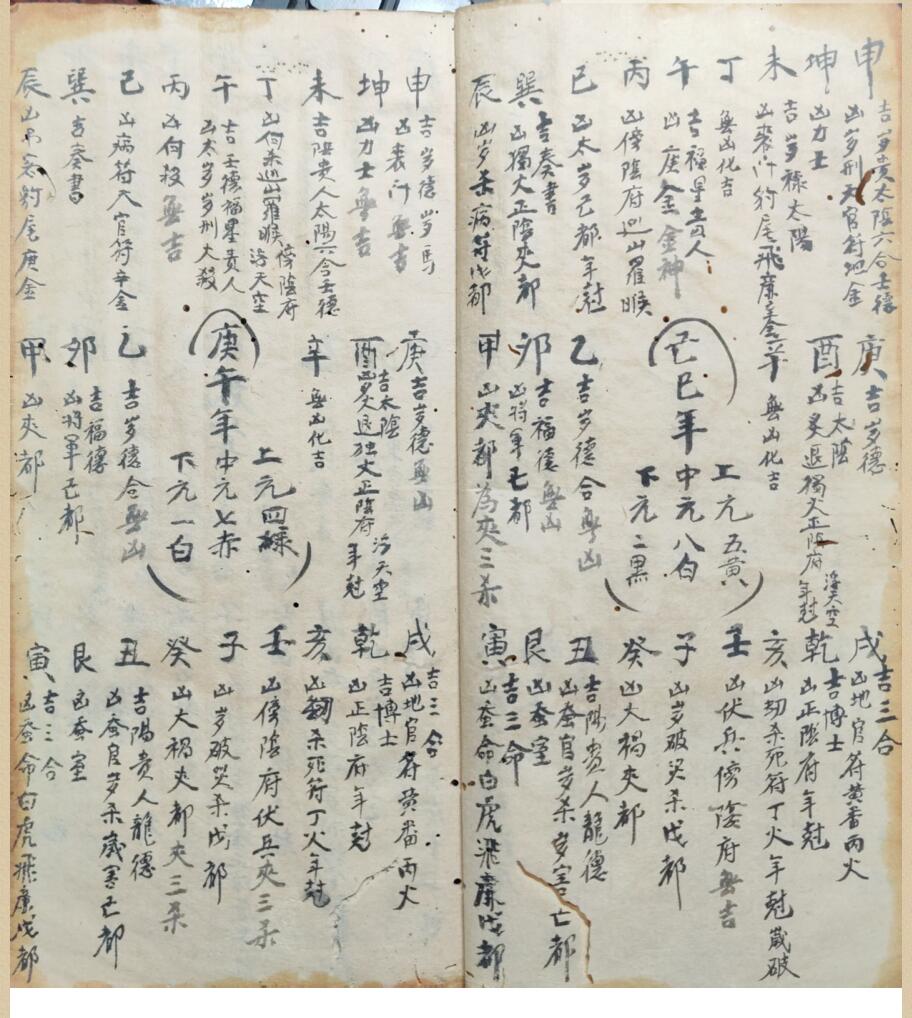 申 吉岁贵太陰六合壬德
凶岁刑天官符地金
坤 吉岁禄太陽
凶力士
未
凶丧门豹尾飛廉
丁 無凶化吉
午 吉福星贵人
凶庚金金神
丙 凶傍陰府巡山羅睺
巳 凶太岁己都年尅
巽 吉奏書
凶獨火正陰夾都
辰 凶岁杀病符戊都
庚 吉岁德
酉 吉太陰
凶炙退獨火正陰府 浮天空 年尅
辛 無凶化吉
己巳年
上元五黄
中元八白
下元二黑
乙 吉岁德合無凶
卯 吉福德無凶
凶将軍己都
甲 凶夾都為夾三杀
戌 吉三合
凶地官符黄番丙火
乾 吉博士
凶正陰府年尅
亥 凶劫杀死符丁火年尅歲破
壬 凶伏兵傍陰府無吉
子 凶岁破災杀戊都
癸 凶大禍夾都
丑 吉陽贵人龍德
凶蚕官岁杀岁害亡都
艮 凶蚕室
寅 吉三命
凶蚕命白虎飛廉戊都
申 吉岁德岁馬
凶丧门無吉
坤 凶力士無吉
未 吉陰贵人太陽六合壬德
丁 凶何杀巡山羅睺 傍陰府 浮天空
午 吉壬德福星贵人
凶太岁岁刑大殺
丙 凶何殺無吉
巳 凶病符天官符辛金
巽 吉奏書
辰 凶吊客豹尾庚金
庚 吉岁德無凶
酉 吉太陰
凶炙退独火正陰府 浮天空 年尅
辛 無凶化吉
庚午年
上元四綠
中元七赤
下元一白
乙 吉岁德合無凶
卯 吉福德
凶将軍己都
甲 凶夾都
戌 吉三合
凶地官符黄番丙火
乾 吉博士
凶正陰府年尅
亥 凶劫杀死符丁火年尅
壬 凶傍陰府伏兵夾三杀
子 凶岁破災杀戊都
癸 凶大禍夾都夾三杀
丑 吉陽贵人龍德
凶蚕官岁杀歲害亡都
艮 凶蚕室
寅 吉三合
凶蚕命白虎飛廉戊都